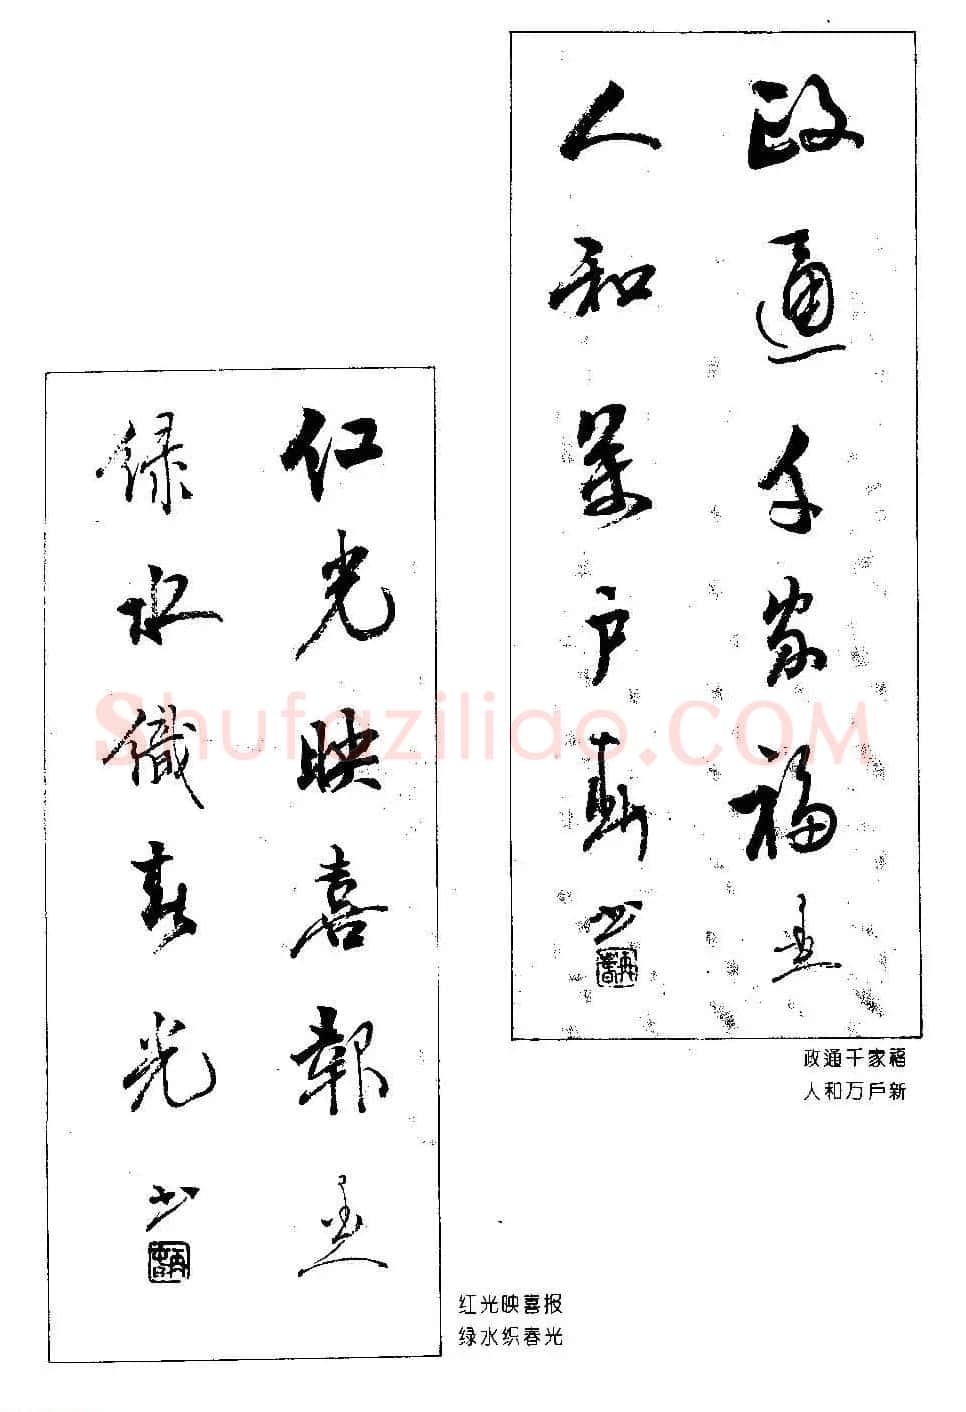 政通千家福
人和萬户新
政通千家福
人和万户新
紅光映喜報
緑水織春光
红光映喜报
绿水织春光
Shufaziliao.COM